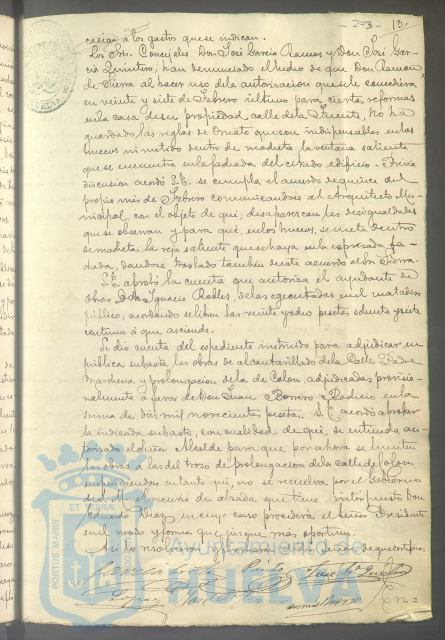 - 23 - 13.
cacion á los gastos que se indican.
Los Sres. Concejales Don José García Ramos y Don José Gar-
cía Quintero, han denunciado el hecho de que Don Ramon
de Sierra al hacer uso de la autorizacion que se le concediera
en veinte y siete de Febrero último para ciertas reformas
en la casa de su propiedad calle de la Fuente, no ha
guardado las reglas de Ornato que son indispensables en los
huecos ni metido dentro de mocheta la ventana saliente
que se encuentra en la fachada del citado edificio. Previa
discusion acordó S.E. se cumpla el acuerdo de quince del
propio mes de Febrero comunicandose al Arquitecto Mu-
nicipal, con el objeto de que, desaparezcan las desigualdades
que se observan y para que, en los huecos, se meta dentro
de mocheta, la reja saliente que se haya en la expresada fa-
chada, dandose traslado tambien de este acuerdo al Sr. Sierra.
S.E. aprobó la cuenta que autoriza el ayudante de
obras Don Ignacio Robles, de las ejecutadas en el matadero
público, acordando se libren las veinte y dos pesetas ochenta y siete
centimos á que asciende.
Se dio cuenta del expediente instruido para adjudicar en
pública subasta las obras de alcantarillado de la Calle Padre
Marchena y prolongacion de la de Colon, adjudicadas provisio-
nalmente á favor de Don Juan Borrero Rodicio en la
suma de diez mil novecientas pesetas. S.E. acordó aprobar
la indicada subasta, con cualidad de que, se entienda au-
torizado el señor Alcalde para que por ahora se limiten
las obras á las del trozo de prolongacion de la calle de Colon
suspendiendose en tanto que, no se resuelva por el Gobierno
de S.M. el recurso de alzada que tiene interpuesto Don
Eduardo Diaz, en cuyo caso procederá el señor Presidente
en el modo y forma que juzgue mas oportuno.
Asi lo resolvieron y firmaron dichos Señores de que certifico.
PORTUS MARIS ET TERRAE
Ayuntamiento de
HUELVA